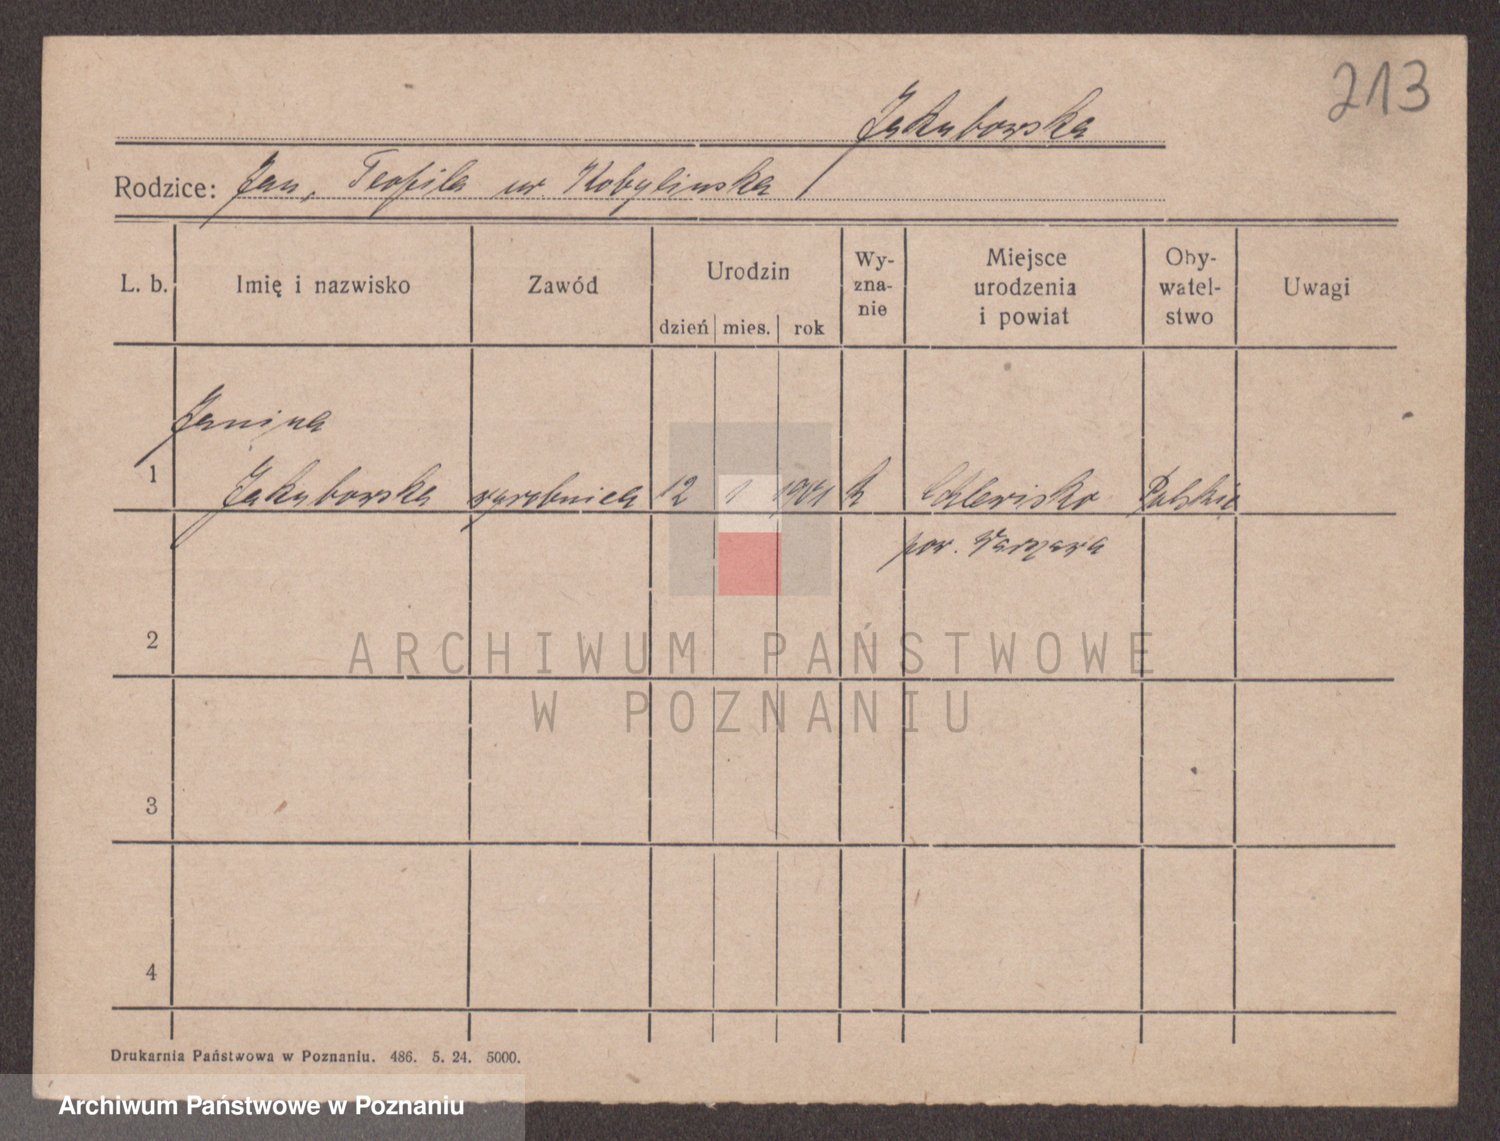 213
Jakubowska
Rodzice: Jan, Teofila ur. Kobylinska
L. b. Imię i nazwisko Zawód Urodzin dzień mies. rok Wyznanie Miejsce urodzenia i powiat Obywatelstwo Uwagi
Janina
1 Jakubowska wyrobnica 12 1 k Polskie
pow.
2
ARCHIWUM PAŃSTWOWE
W POZNANIU
3
4
Drukarnia Państwowa w Poznaniu. 486. 5. 24. 5000.
Archiwum Państwowe w Poznaniu